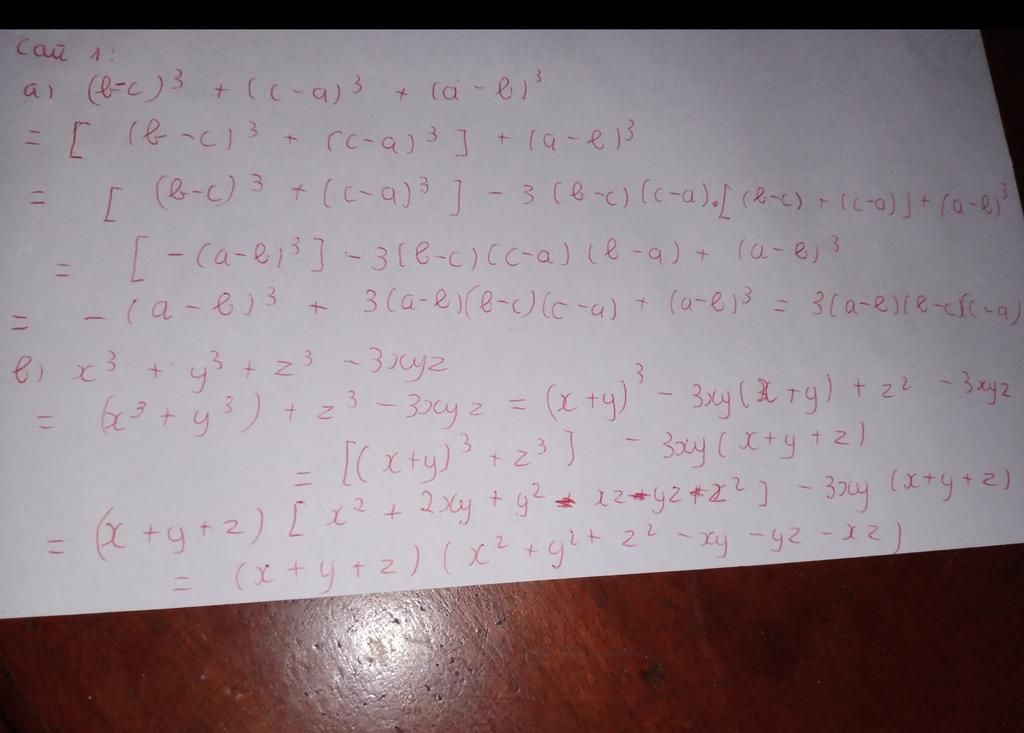 Câu 1:
a) (b-c)³ + (c-a)³ + (a-b)³
= [ (b-c)³ + (c-a)³ ] + (a-b)³
= [ (b-c)³ + (c-a)³ ] - 3(b-c)(c-a).[(b-c) + (c-a)] + (a-b)³
= [-(a-b)³] - 3(b-c)(c-a)(b-a) + (a-b)³
= -(a-b)³ + 3(a-b)(b-c)(c-a) + (a-b)³ = 3(a-b)(b-c)(c-a)
b) x³ + y³ + z³ - 3xyz
= (x³ + y³) + z³ - 3xyz = (x+y)³ - 3xy(x+y) + z² - 3xyz
= [(x+y)³ + z³] - 3xy(x+y+z)
= (x+y+z)[x² + 2xy + y² - xz - yz + z²] - 3xy(x+y+z)
= (x+y+z)(x² + y² + z² - xy - yz - xz)